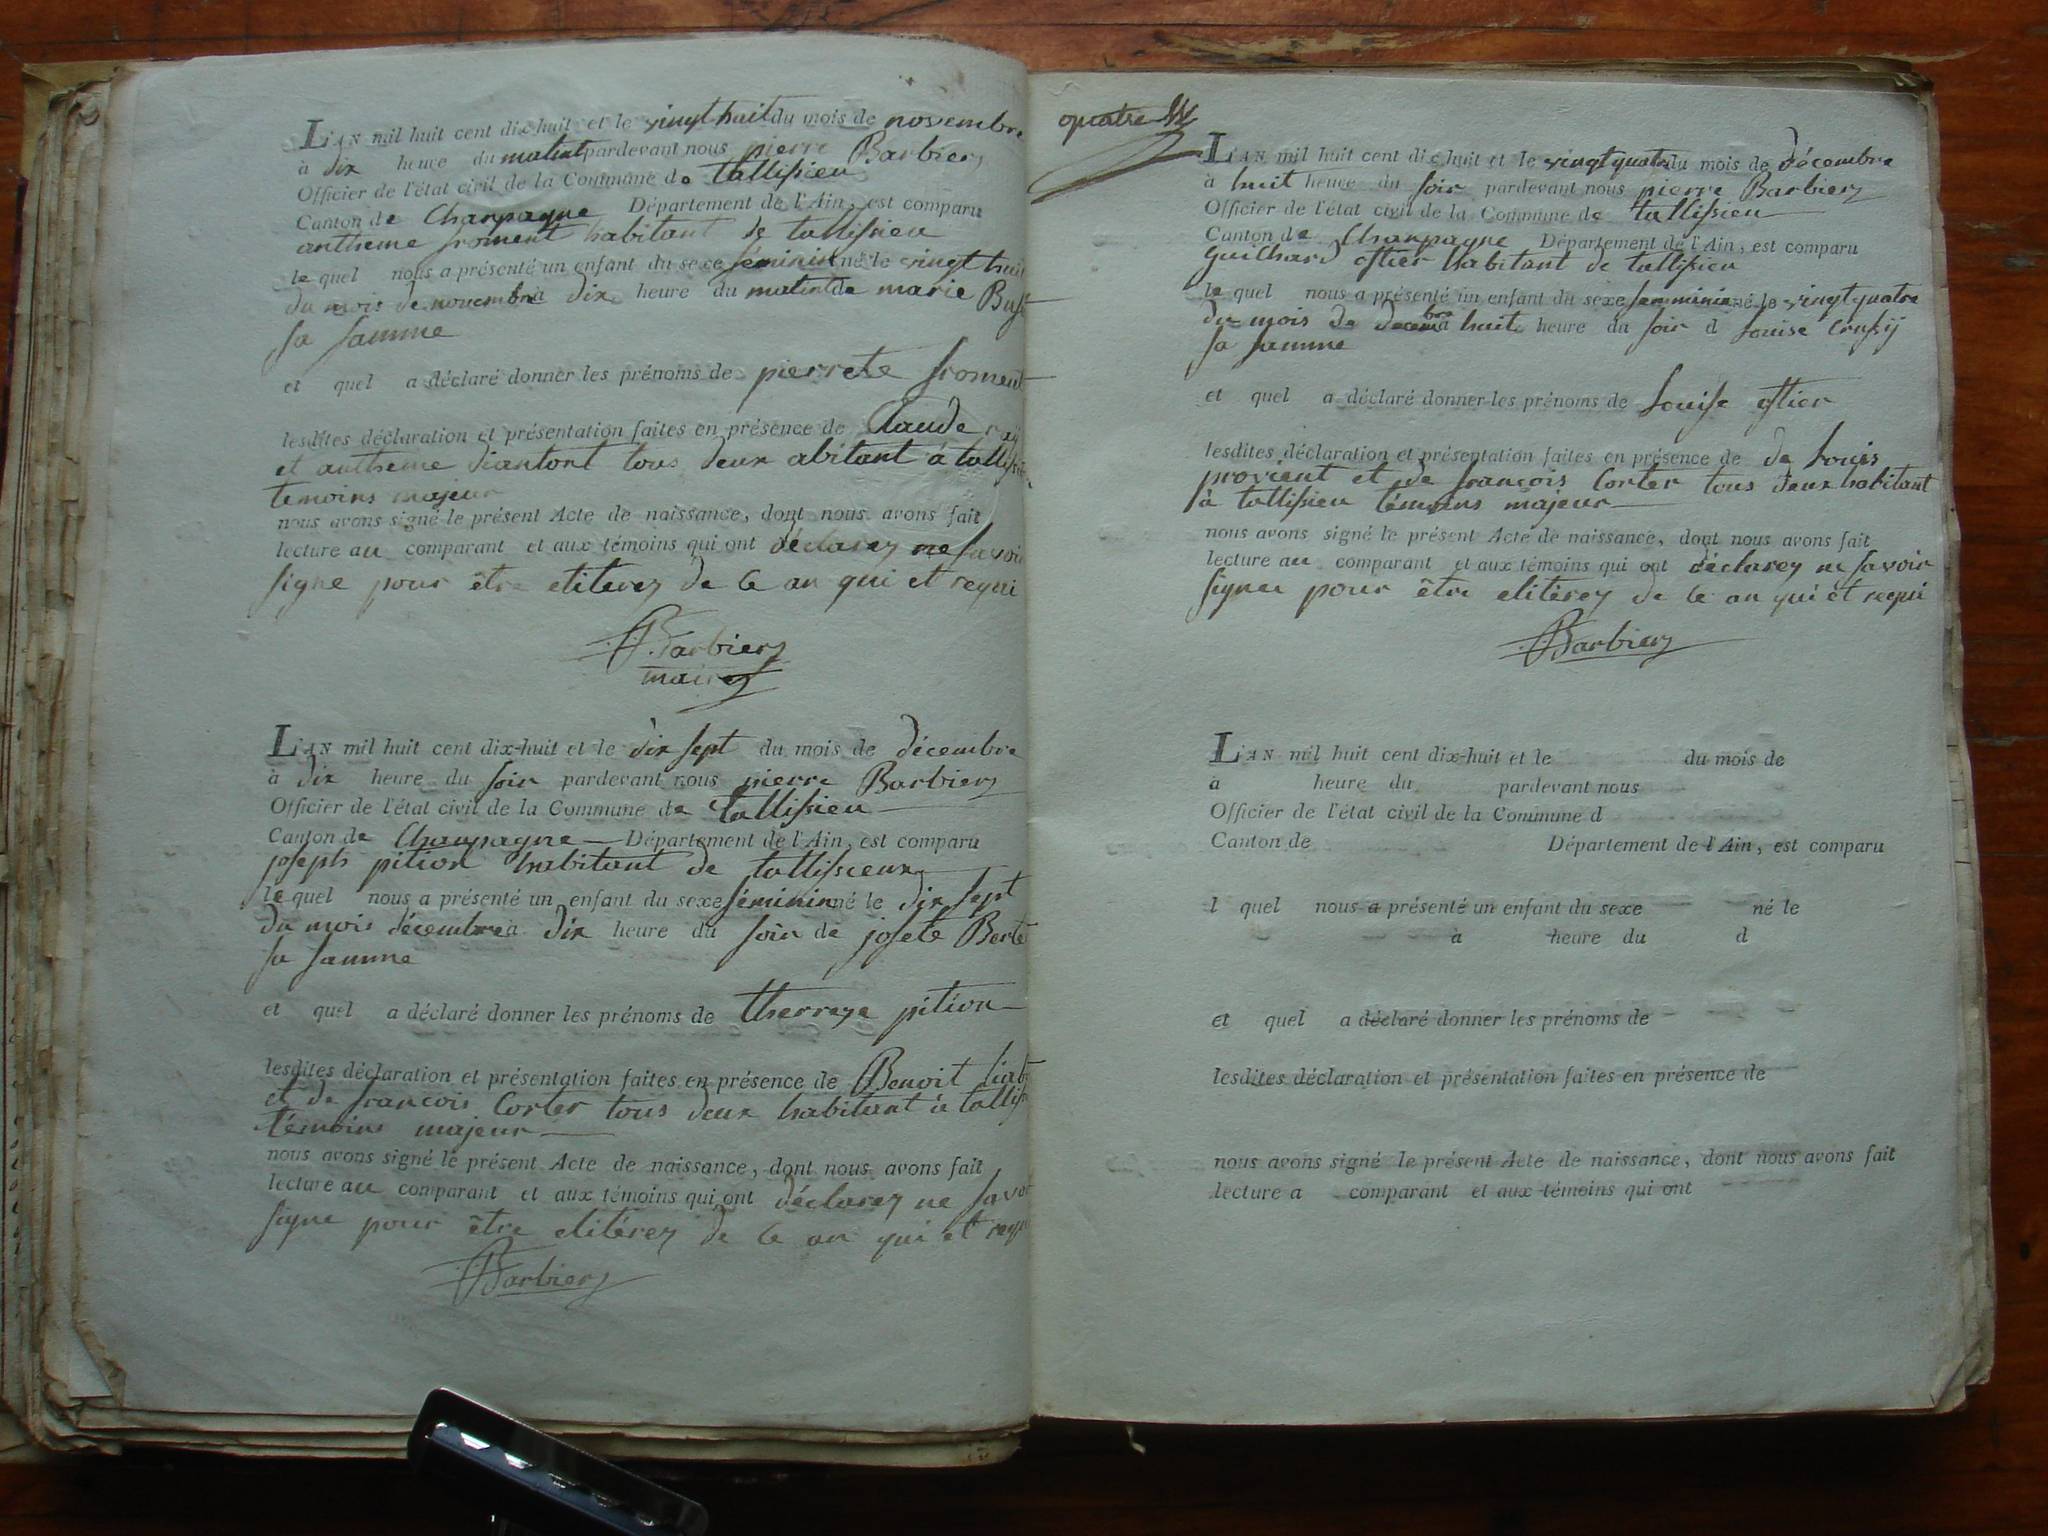 L'AN mil huit cent dix-huit et le vingt huit du mois de novembre
à dix heure du matint pardevant nous pierre Barbiery
Officier de l'état civil de la Commune de tallissieu
Canton de Champagne Département de l'Ain, est comparu
antheme froment habitant de tallissieu
le quel nous a présenté un enfant du sexe féminin né le vingt huit
du mois de novembre à dix heure du matint de marie
sa famme
et quel a déclaré donner les prénoms de pierrete froment
lesdites déclaration et présentation faites en présence de Claude
et antheme tous deux abitant à
temoins majeur
nous avons signé le présent Acte de naissance, dont nous avons fait
lecture au comparant et aux témoins qui ont déclarez ne savoir
signe pour être etiterez de ce an qui et requi
P. Barbiery
maire
L'AN mil huit cent dix-huit et le dix sept du mois de décembre
à dix heure du soir pardevant nous pierre Barbiery
Officier de l'état civil de la Commune de tallissieu
Canton de Champagne Département de l'Ain, est comparu
joseph pition habitant de tallissieux
le quel nous a présenté un enfant du sexe féminin né le dix sept
du mois décembre à dix heure du soir de josete
sa famme
et quel a déclaré donner les prénoms de therreze pition
lesdites déclaration et présentation faites en présence de Benoit
et de francois Corter tous deux habitant à
témoins majeur
nous avons signé le présent Acte de naissance, dont nous avons fait
lecture au comparant et aux témoins qui ont déclarez ne
signe pour être elitérez de ce an qui et
P Barbiery
quatre
L'AN mil huit cent dix-huit et le vingt quatre du mois de décembre
à huit heure du soir pardevant nous pierre Barbiery
Officier de l'état civil de la Commune de tallissieu
Canton de Champagne Département de l'Ain, est comparu
Guichard ostier habitant de tallissieu
le quel nous a présenté un enfant du sexe femminin né le vingt quatre
du mois de decembre à huit heure du soir d louise
sa famme
et quel a déclaré donner les prénoms de louise ostier
lesdites déclaration et présentation faites en présence de de louis
provient et de françois Corter tous deux habitant
à tallissieu témoins majeur
nous avons signé le présent Acte de naissance, dont nous avons fait
lecture au comparant et aux témoins qui ont déclarez ne savoir
signer pour être elitérez de ce an qui et requi
P Barbiery
L'AN mil huit cent dix-huit et le du mois de
à heure du pardevant nous
Officier de l'état civil de la Commune d
Canton de Département de l'Ain, est comparu
l quel nous a présenté un enfant du sexe né le
à heure du d
et quel a déclaré donner les prénoms de
lesdites déclaration et présentation faites en présence de
nous avons signé le présent Acte de naissance, dont nous avons fait
lecture a comparant et aux témoins qui ont